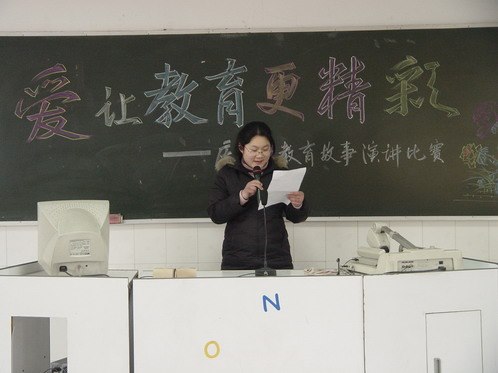 爱让教育更精彩
教育故事演讲比赛
N
O